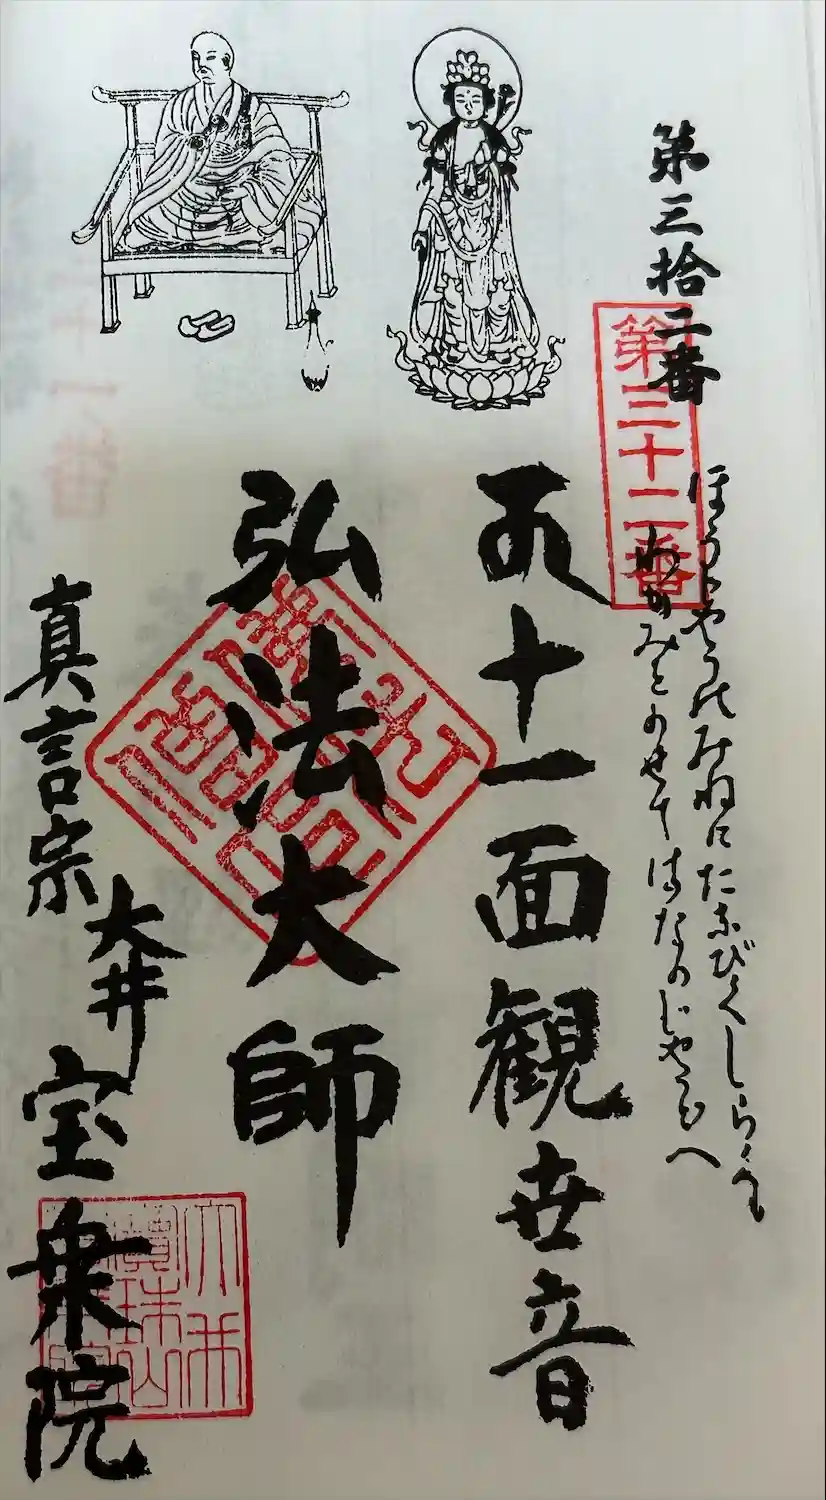 第三拾二番
第三十二番
ほうじやうのみねにたなびくしらくも
わがみをのせてはなのじやうどへ
十一面観世音
弘法大師
真言宗
大井
宝衆院